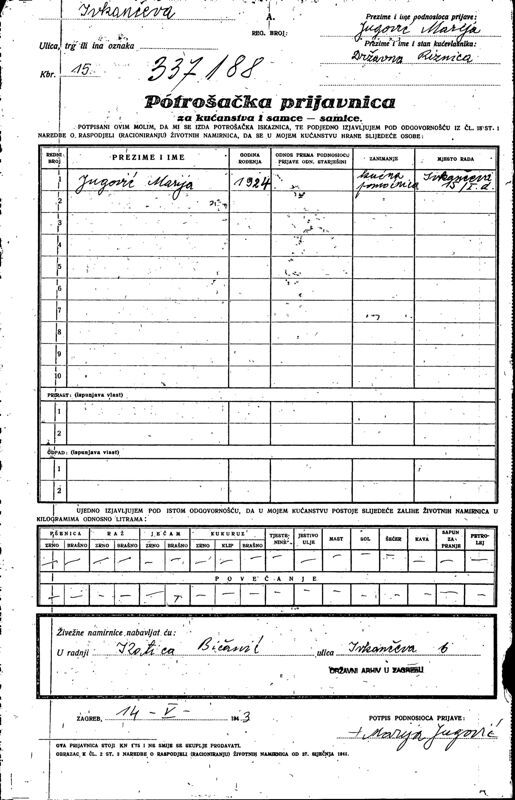 Ivkančeva
A.
REG. BROJ:
Prezime i ime podnosioca prijave:
Jugović Marija
Ulica, trg ili ina oznaka
Prezime i ime i stan kućevlasnika:
Državna Riznica
Kbr. 15.
337188
Potrošačka prijavnica
za kućanstva i samce — samice.
POTPISANI OVIM MOLIM, DA MI SE IZDA POTROŠAČKA ISKAZNICA, TE PODJEDNO IZJAVLJUJEM POD ODGOVORNOŠĆU IZ ČL. 18 ST. 1
NAREDBE O RASPODJELI (RACIONIRANJU) ŽIVOTNIH NAMIRNICA, DA SE U MOJEM KUĆANSTVU HRANE SLIJEDEĆE OSOBE:
REDNI BROJ PREZIME I IME GODINA ROĐENJA ODNOS PREMA PODNOSIOCU PRIJAVE ODN. STARJEŠINI ZANIMANJE MJESTO RADA
1 Jugović Marija 1924 kućna pomoćnica Ivkančeva 15/I. d.
2
3
4
5
6
7
8
9
10
PRIRAST: (ispunjava vlast)
1
2
ODPAD: (ispunjava vlast)
1
2
UJEDNO IZJAVLJUJEM POD ISTOM ODGOVORNOŠĆU, DA U MOJEM KUĆANSTVU POSTOJE SLIJEDEĆE ZALIHE ŽIVOTNIH NAMIRNICA U
KILOGRAMIMA ODNOSNO LITRAMA:
PŠENICA RAŽ JEČAM KUKURUZ TJESTENINE JESTIVO ULJE MAST SOL ŠEĆER KAVA SAPUN ZA PRANJE PETROLEJ
ZRNO BRAŠNO ZRNO BRAŠNO ZRNO BRAŠNO ZRNO KLIP BRAŠNO
POVEĆANJE
Živežne namirnice nabavljat ću:
U radnji Katica Bičanić ulica Ivkančeva 6
DRŽAVNI ARHIV U ZAGREBU
ZAGREB, 14 - V - 1943
POTPIS PODNOSIOCA PRIJAVE:
+ Marija Jugović
OVA PRIJAVNICA STOJI KN 1.75 I NE SMIJE SE SKUPLJE PRODAVATI.
OBRAZAC K ČL. 2 ST. 3 NAREDBE O RASPODJELI (RACIONIRANJU) ŽIVOTNIH NAMIRNICA OD 27. SIJEČNJA 1941.